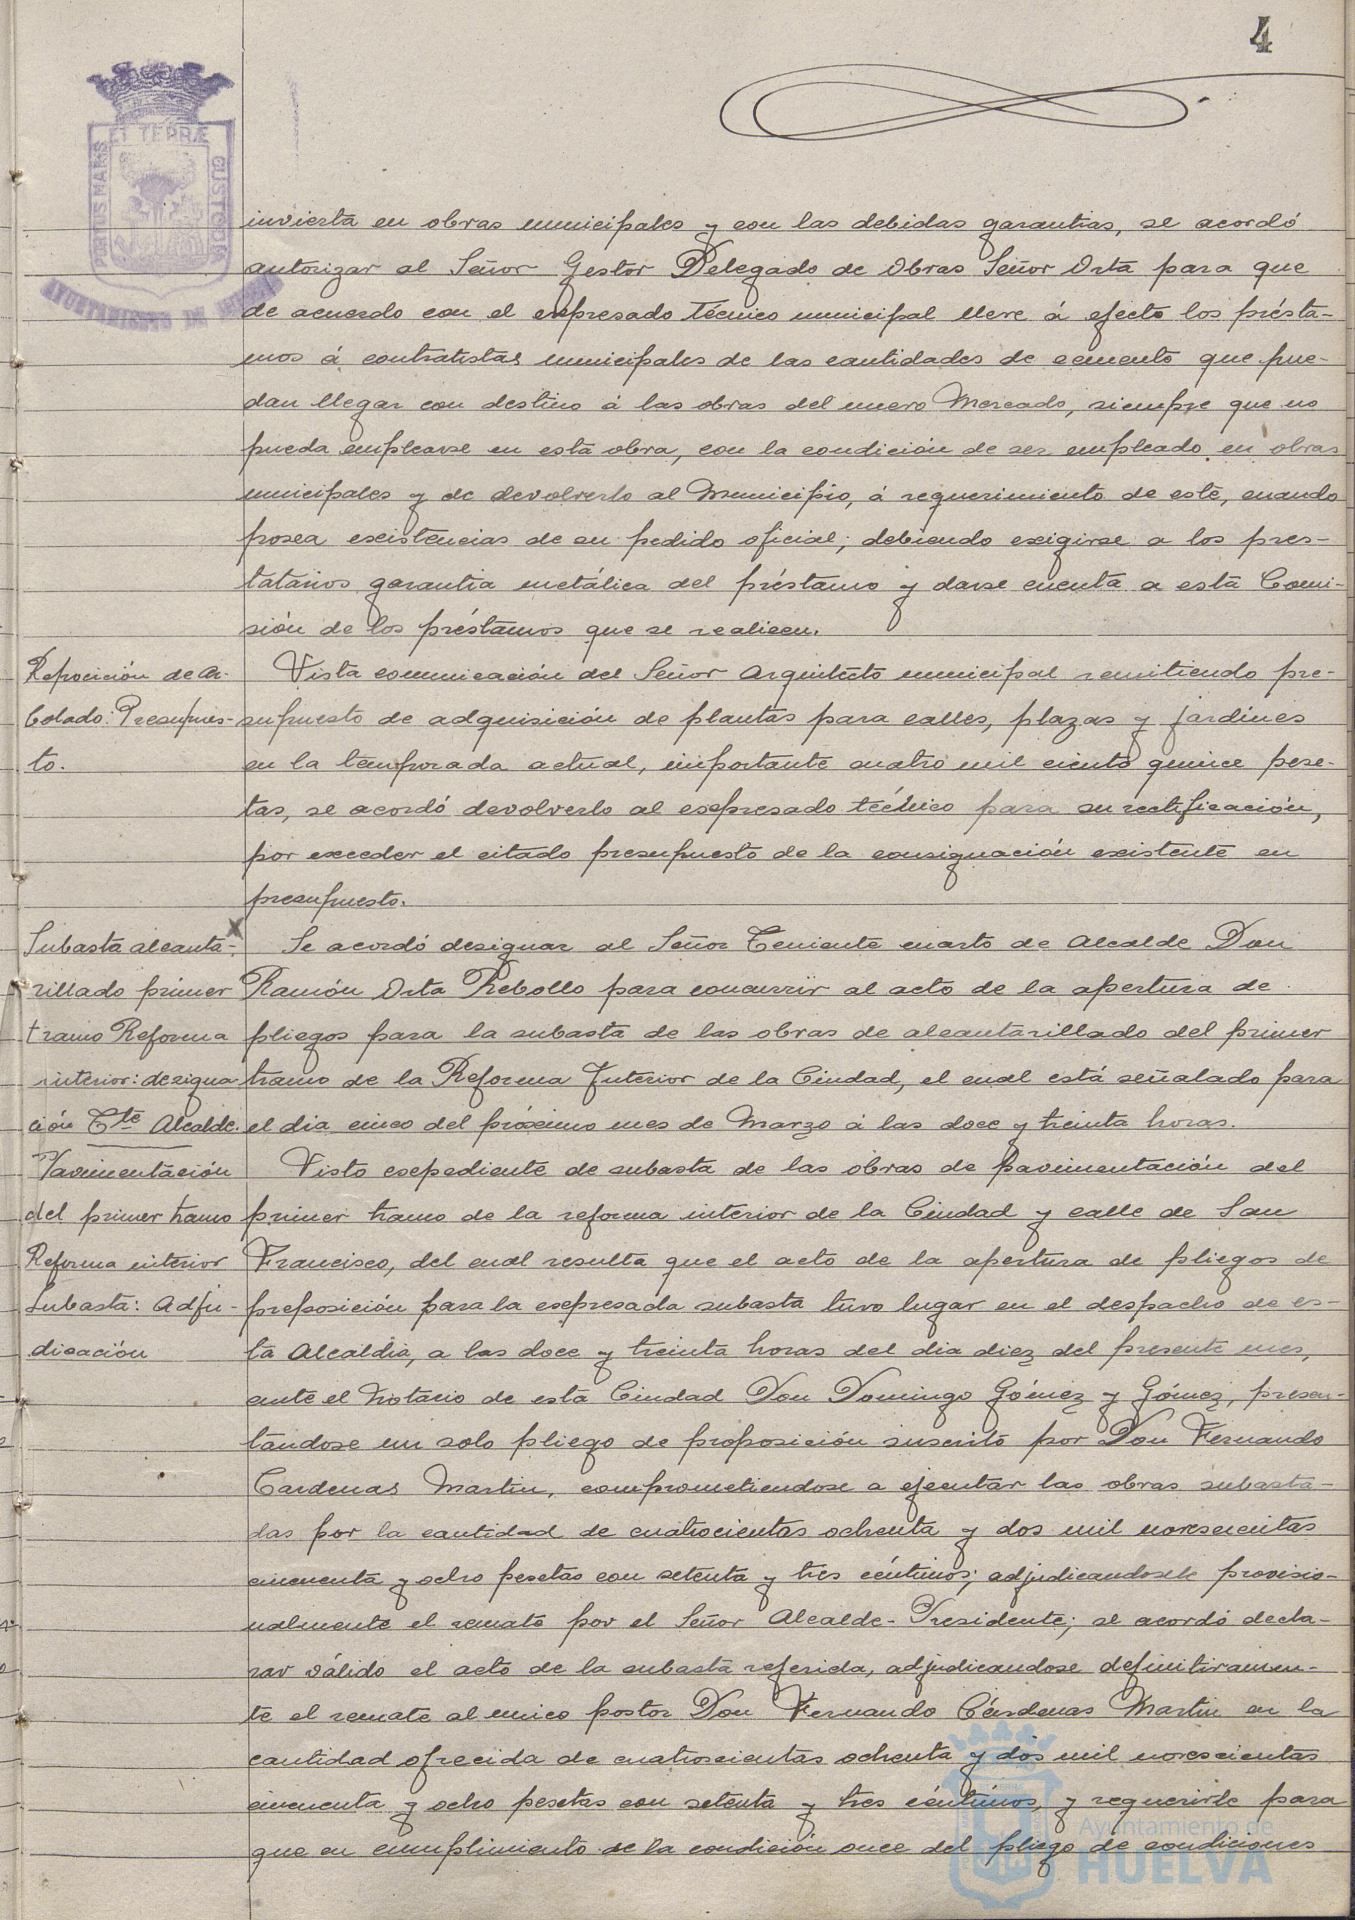 4
PORTUS MARIS ET TERRÆ CUSTODIA
AYUNTAMIENTO DE HUELVA
invierta en obras municipales y con las debidas garantias, se acordó
autorizar al Señor Gestor Delegado de Obras Señor Orta para que
de acuerdo con el expresado Técnico municipal lleve á efecto los présta-
mos á contratistas municipales de las cantidades de cemento que pue-
dan llegar con destino á las obras del nuevo Mercado, siempre que no
pueda emplearse en esta obra, con la condición de ser empleado en obras
municipales y de devolverlo al Municipio, á requerimiento de este, cuando
posea existencias de su pedido oficial; debiendo exigirse a los pres-
tatarios garantia metálica del préstamo y darse cuenta a esta Comi-
sión de los préstamos que se realicen.
Reposición de ar-
bolado: Presupues-
to.
Vista comunicación del Señor Arquitecto municipal remitiendo pre-
supuesto de adquisición de plantas para calles, plazas y jardines
en la temporada actual, importante cuatro mil ciento quince pese-
tas, se acordó devolverlo al expresado técnico para su rectificación,
por exceder el citado presupuesto de la consignación existente en
presupuesto.
Subasta alcanta-
rillado primer
tramo Reforma
interior: designa
ción Tte Alcalde.
Se acordó designar al Señor Teniente cuarto de Alcalde Don
Ramón Orta Rebollo para concurrir al acto de la apertura de
pliegos para la subasta de las obras de alcantarillado del primer
tramo de la Reforma Interior de la Ciudad, el cual está señalado para
el dia cinco del próximo mes de Marzo á las doce y treinta horas.
Pavimentación
del primer tramo
Reforma interior
Subasta: Adju-
dicación
Visto expediente de subasta de las obras de pavimentación del
primer tramo de la reforma interior de la Ciudad y calle de San
Francisco, del cual resulta que el acto de la apertura de pliegos de
preposición para la expresada subasta tuvo lugar en el despacho de es-
ta Alcaldia, a las doce y treinta horas del dia diez del presente mes,
ante el Notario de esta Ciudad Don Domingo Gómez y Gómez, presen-
tandose un solo pliego de proposición suscrito por Don Fernando
Cardenas Martin, comprometiendose a ejecutar las obras subasta-
das por la cantidad de cuatrocientas ochenta y dos mil novescientas
cincuenta y ocho pesetas con setenta y tres céntimos; adjudicandosele provisio-
nalmente el remate por el Señor Alcalde-Presidente; se acordó decla-
rar válido el acto de la subasta referida, adjudicandose definitivamen-
te el remate al unico postor Don Fernando Cárdenas Martin en la
cantidad ofrecida de cuatrocientas ochenta y dos mil novescientas
cincuenta y ocho pesetas con setenta y tres céntimos, y requerirle para
que en cumplimiento de la condición once del pliego de condiciones
Ayuntamiento de
HUELVA